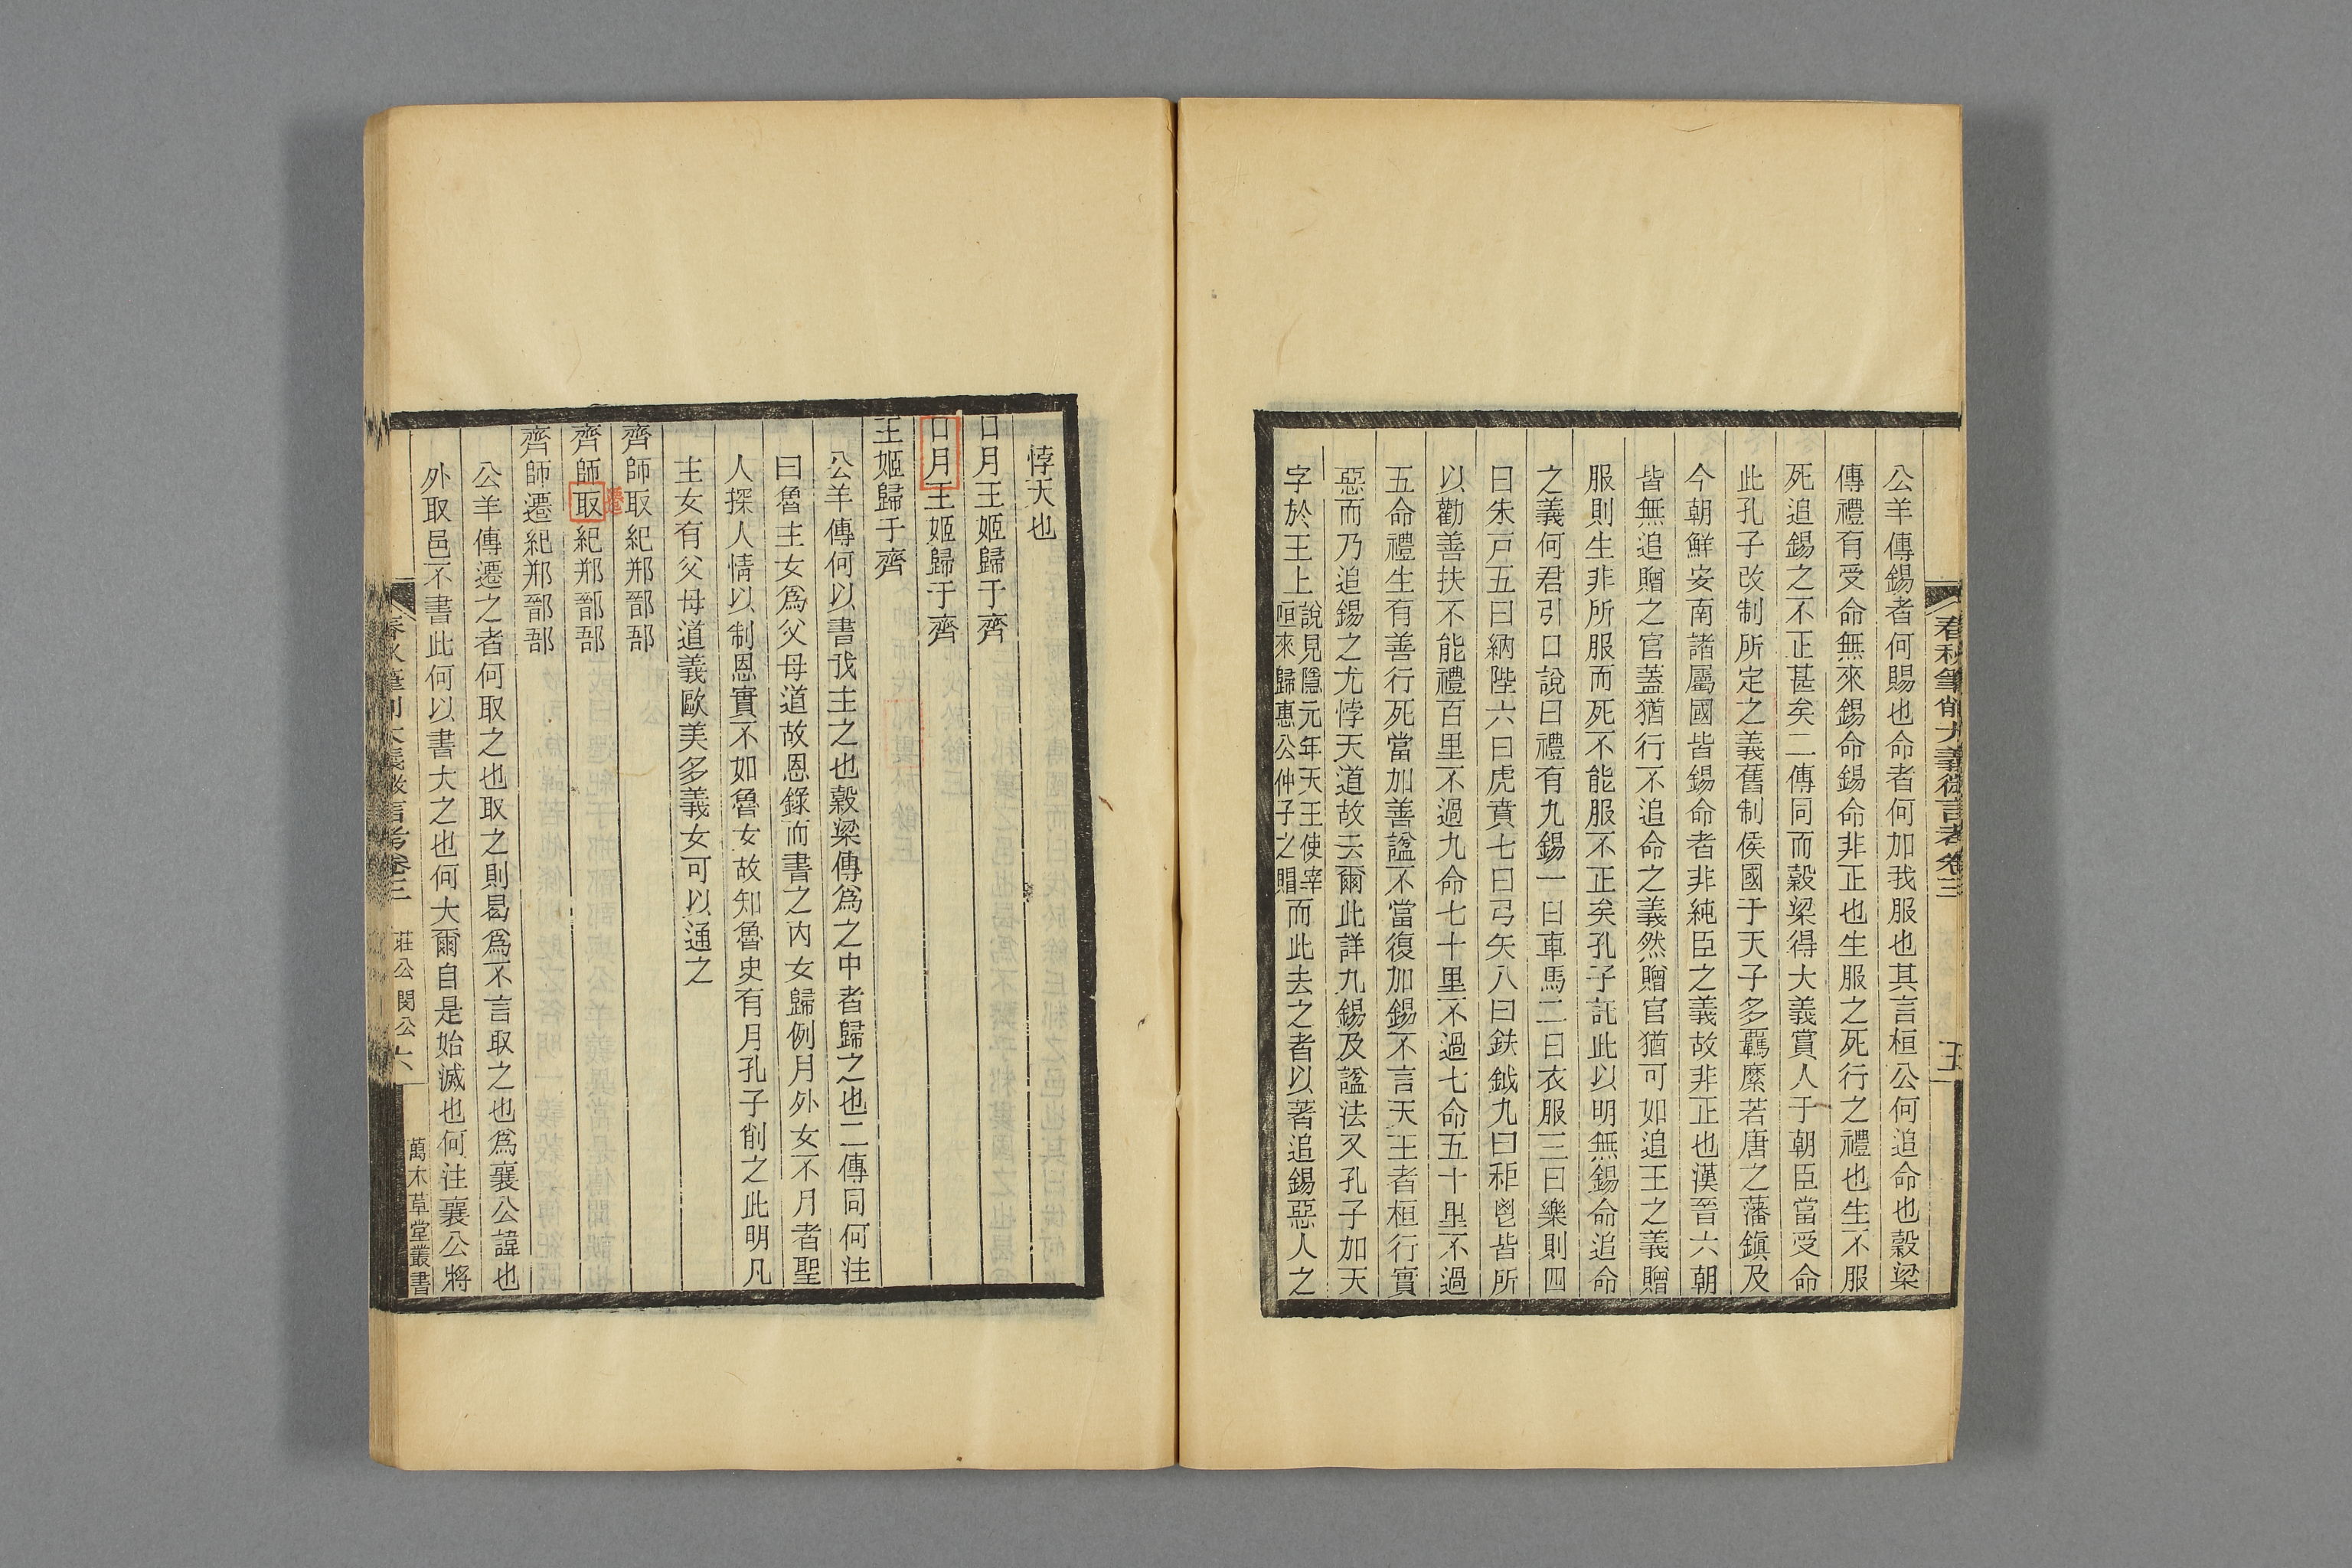 春秋筆削大義微言考卷三
五
公羊傳錫者何賜也命者何加我服也其言桓公何追命也穀梁
傳禮有受命無來錫命錫命非正也生服之死行之禮也生不服
死追錫之不正甚矣二傳同而穀梁得大義賞人于朝臣當受命
此孔子改制所定之義舊制侯國于天子多羈縻若唐之藩鎮及
今朝鮮安南諸屬國皆錫命者非純臣之義故非正也漢晉六朝
皆無追贈之官蓋猶行不追命之義然贈官猶可如追王之義贈
服則生非所服而死不能服不正矣孔子託此以明無錫命追命
之義何君引口說曰禮有九錫一曰車馬二曰衣服三曰樂則四
曰朱戸五曰納陛六曰虎賁七曰弓矢八曰鈇鉞九曰秬鬯皆所
以勸善扶不能禮百里不過九命七十里不過七命五十里不過
五命禮生有善行死當加善諡不當復加錫不言天王者桓行實
惡而乃追錫之尤悖天道故云爾此詳九錫及諡法又孔子加天
字於王上說見隱元年天王使宰咺來歸惠公仲子之賵而此去之者以著追錫惡人之
悖天也
囗月王姬歸于齊
囗月王姬歸于齊
王姬歸于齊
公羊傳何以書我主之也穀梁傳爲之中者歸之也二傳同何注
曰魯主女爲父母道故恩錄而書之内女歸例月外女不月者聖
人探人情以制恩實不如魯女故知魯史有月孔子削之此明凡
主女有父母道義歐美多義女可以通之
齊師取紀郱鄑郚
遷
齊師取紀郱鄑郚
齊師遷紀郱鄑郚
公羊傳遷之者何取之也取之則曷爲不言取之也爲襄公諱也
外取邑不書此何以書大之也何大爾自是始滅也何注襄公將
春秋筆削大義微言考卷三 莊公閔公 六 萬木草堂叢書